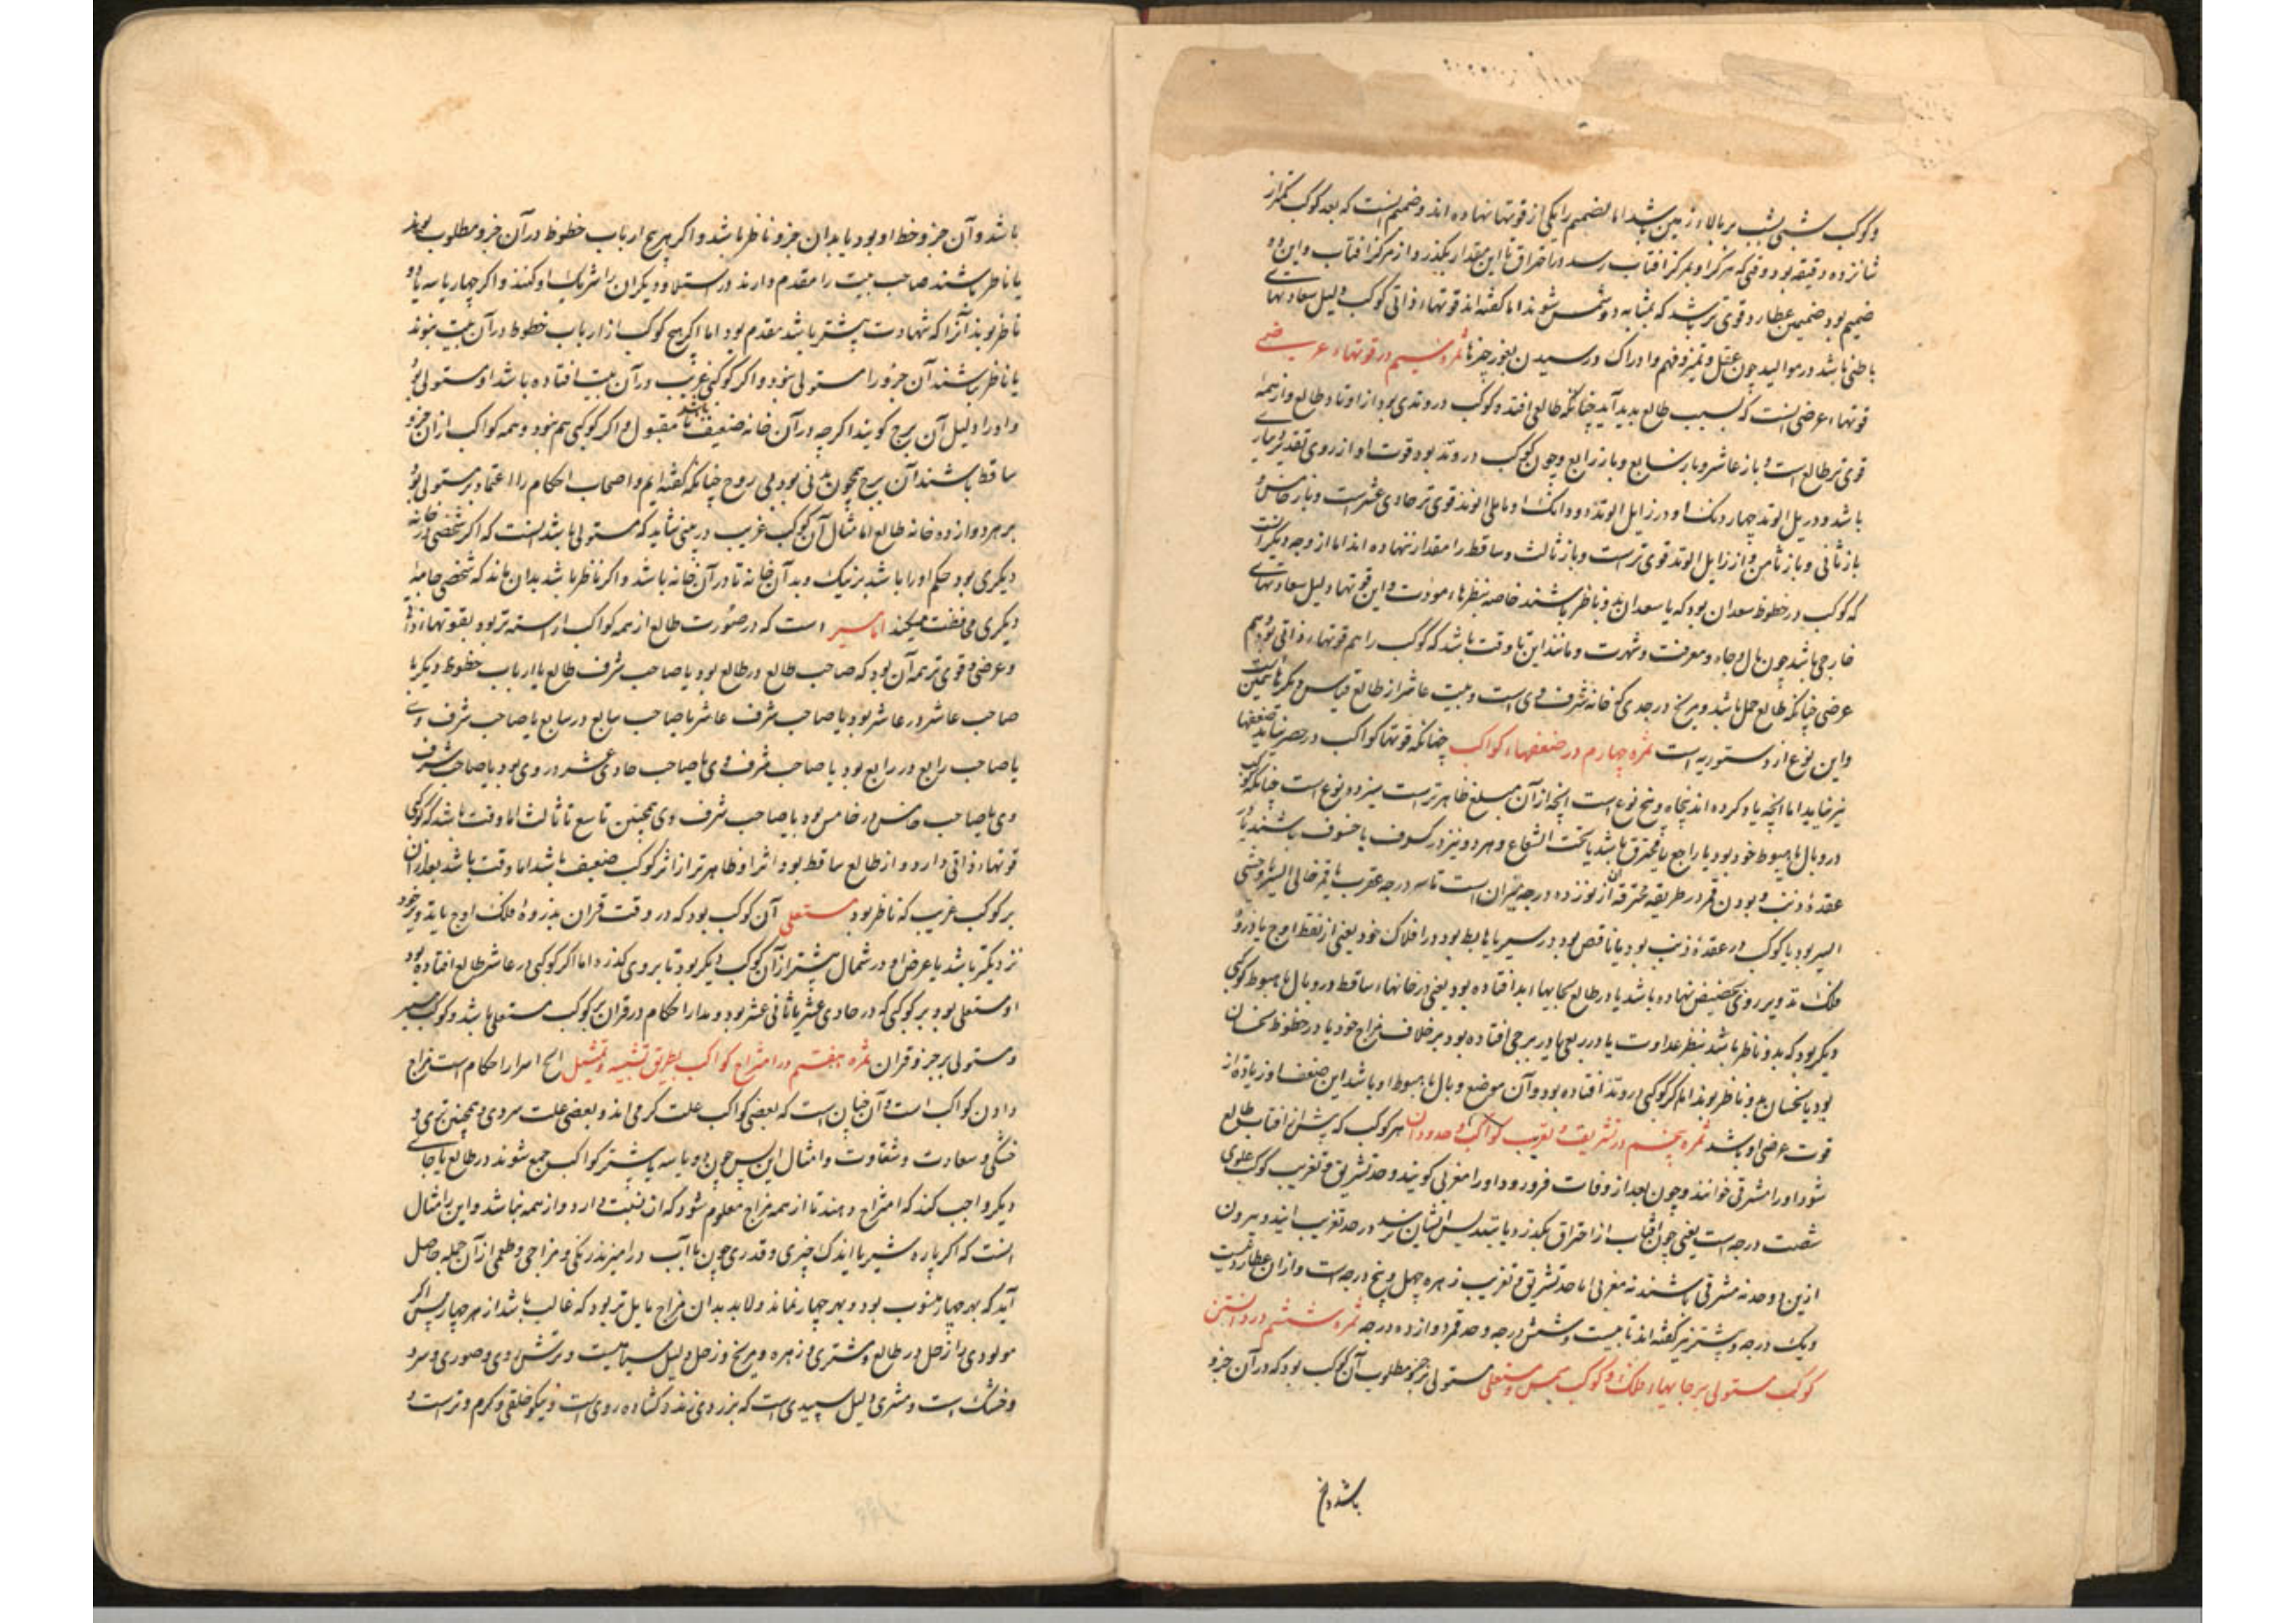 و کوکب شبی بشب بر بالاء زمین باشد اما تضمیم را یکی از قوتها نهاده اند و ضمیم آنست که بعد کوکب کمتر از
شانزده دقیقه بود و قتی که مرکز او بمرکز آفتاب رسد در احتراق تا این مقدار بگذرد و از مرکز آفتاب و این
ضمیم بود ضمیمی عطارد قوی تر باشد که بمثابه دو شمس شوند اما گفته اند قوتهاء ذاتی کوکب دلیل سعادتهاء
باطنی باشد در موالید چون عقل و تمیز و فهم و ادراک و رسیدن بغور چیزها ثمره سیم در قوتهاء عرضی
قوتهاء عرضی آنست که بسبب طالع پدید آید چنانکه طالعی افتد و کوکب در وتدی بود از اوتاد طالع و از همه
قوی تر طالع است و باز عاشر و باز سابع و باز رابع و چون کوکب در وتد بود قوت او از روی تقدیر
باشد و در مایل الوتد چهار دانگ او در زایل الوتد دو دانگ او مایل الوتد قوی تر حادی عشرست و باز خامس و
باز ثانی و باز ثامن و از زایل الوتد قوی ترست و باز ثالث و ساقط را مقدار ننهاده اند اما از وجه دیگر آنست
که کوکب در حظوظ سعدان بود که یا سعدان بدو ناظر باشند خاصه بنظرهاء مودت و این قوتها دلیل سعادتهاء
خارجی باشد چون مال و جاه و معرفت و شهرت و مانند این تا وقت باشد که کوکب را هم قوتهاء ذاتی بود و هم
عرضی چنانکه طالع حمل باشد و مریخ در جدی که خانه شرف وی است و بیت عاشر از طالع قیاس دیگرها همچنین
و این نوع از دستوریه است ثمره چهارم در ضعفهاء کواکب چنانکه قوتها کواکب در حصر نیاید ضعفها
نیز نیاید اما آنچه یاد کرده اند پنجاه و پنج نوع است آنچه از آن مبلغ ظاهر ترست سیزده نوع است چنانکه کوکب
در وبال یا هبوط خود بود یا راجع یا محترق باشد یا تحت الشعاع و هر دو نیز در کسوف یا خسوف باشند یا در
عقده ذنب و بودن قمر در طریقه محترقه از نوزده درجه میزان است تا سه درجه عقرب یا قمر خالی السیر و وحشی
السیر بود یا کوکب در عقده ذنب بود یا ناقص بود در سیر یا هابط بود در افلاک خود یعنی از نقط اوج یا ذروه
فلک تدویر روی بحضیض نهاده باشد یا در طالع بجایهاء بد افتاده بود یعنی در خانهاء ساقط در وبال یا هبوط کوکبی
دیگر بود که بدو ناظر باشد بنظر عداوت یا در ربعی یا در برجی افتاده بود بر خلاف مزاج خود یا در حظوظ نحسان
بود یا نحسان بدو ناظر بوند اما اگر کوکبی در وتد افتاده بود و آن موضع وبال یا هبوط او باشد این ضعف او زیادة از
قوت عرضی او باشد ثمره پنجم در تشریق و تغریب کواکب و حدود آن هر کوکب که پیش از آفتاب طالع
شود او را مشرقی خوانند و چون بعد از وفات فرو رود او را مغربی گویند و حد تشریق و تغریب کوکب علوی
شصت درجه است یعنی چون آفتاب از احتراق بگذرد یا بتسدیس ایشان رسد در حد تغریب آیند و بیرون
ازین دو حد نه مشرقی باشند نه مغربی اما حد تشریق و تغریب زهره چهل و پنج درجه است و از آن عطارد بیست
و یک درجه و بیشتر نیز گفته اند تا بیست و شش درجه و حد قمر دوازده درجه ثمره ششم در دانستن
کوکب مستولی بر جایهاء فلک و کوکب مستعلی مستولی بر جزو مطلوب آن کوکب بود که در آن جزو
باشد و آن
باشد و آن جزو حظ او بود یا بدان جزو ناظر باشد و اگر هیچ ارباب حظوظ در آن جزو مطلوب بوند
یا ناظر باشند صاحب بیت را مقدم دارند در استیلا و دیگران را شریک او کنند و اگر چهار یا سه یا دو
ناظر بوند آنرا که شهادت بیشتر باشد مقدم بود اما اگر هیچ کوکب از ارباب حظوظ در آن بیت نبوند
یا ناظر باشند آن جزو را مستولی نبود و اگر کوکبی غریب در آن بیت افتاده باشد او مستولی بود
و او را دلیل آن برج گویند اگرچه در آن خانه ضعیف باشد یا مقبول و اگر کوکبی هم نبود و همه کواکب از آن جزو
ساقط باشند آن برج همچون بدنی بود بی روح چنانکه گفته ایم و اصحاب احکام را اعتماد بر مستولی بود
بر هر دوازده خانه طالع اما مثال آن کوکب غریب در بیتی شاید که مستولی باشد آنست که اگر شخصی در خانه
دیگری بود حکم او را باشد بر نیک و بد آن خانه تا در آن خانه باشد و اگر ناظر باشد بدان ماند که شخصی جامه
دیگری محافظت میکند اما است که در صورت طالع از همه کواکب آراسته تر بود بقوتهاء ذاتی
و عرضی و قوی تر همه آن بود که صاحب طالع در طالع بود یا صاحب شرف طالع یا ارباب حظوظ دیگر یا
صاحب عاشر در عاشر بود یا صاحب شرف عاشر یا صاحب سابع در سابع یا صاحب شرف وی
یا صاحب رابع در رابع بود یا صاحب شرف وی یا صاحب حادی عشر در وی بود یا صاحب شرف
وی یا صاحب خامس در خامس بود یا صاحب شرف وی همچنین تاسع تا ثالث اما وقت باشد که کوکبی
قوتهاء ذاتی دارد و از طالع ساقط بود اثر او ظاهر تر از اثر کوکب ضعیف باشد اما وقت باشد بعد از آن
بر کوکب غریب که ناظر بود مستعلی آن کوکب بود که در وقت قران بذروه فلک اوج یا تدویر خود
نزدیکتر باشد یا عرض او در شمال بیشتر از آن کوکب دیگر بود تا بر وی گذرد اما اگر کوکبی در عاشر طالع افتاده بود
او مستعلی بود بر کوکبی که در حادی عشر یا ثانی عشر بود و مدار احکام در قران بر کوکب مستعلی باشد و کوکب
و مستولی بر جزو قران ثمره هفتم در امتزاج کواکب بطریق تشبیه و تمثیل اسرار احکام است مزاج
دادن کواکب است و آن چنان است که بعضی کواکب علت گرمی اند و بعضی علت سردی و همچنین تری و
خشکی و سعادت و شقاوت و امثال این پس چون دو یا سه یا بیشتر کواکب جمع شوند در طالع یا جای
دیگر واجب کند که امتزاج دهند تا از همه مزاج معلوم شود که آن نسبت دارد و از همه نباشد و این را مثال
آنست که اگر پاره شیر با اندک چیزی و قدری چون با آب در آمیزند رنگی و مزاجی و طعمی از آن جمله حاصل
آید که بهر چهار منسوب بود و بهر چهار نماند و لابد بدان مزاج مایل تر بود که غالب باشد از هر چهار پس اگر
مولودی را زحل در طالع و مشتری و زهره و مریخ و زحل دلیل سیاهیست و ترش روی و صبوری و سرد
و خشک است و مشتری دلیل سپیدی است که بزردی زند و گشاده روی است و نیکو خلقی و کرم و ترست و